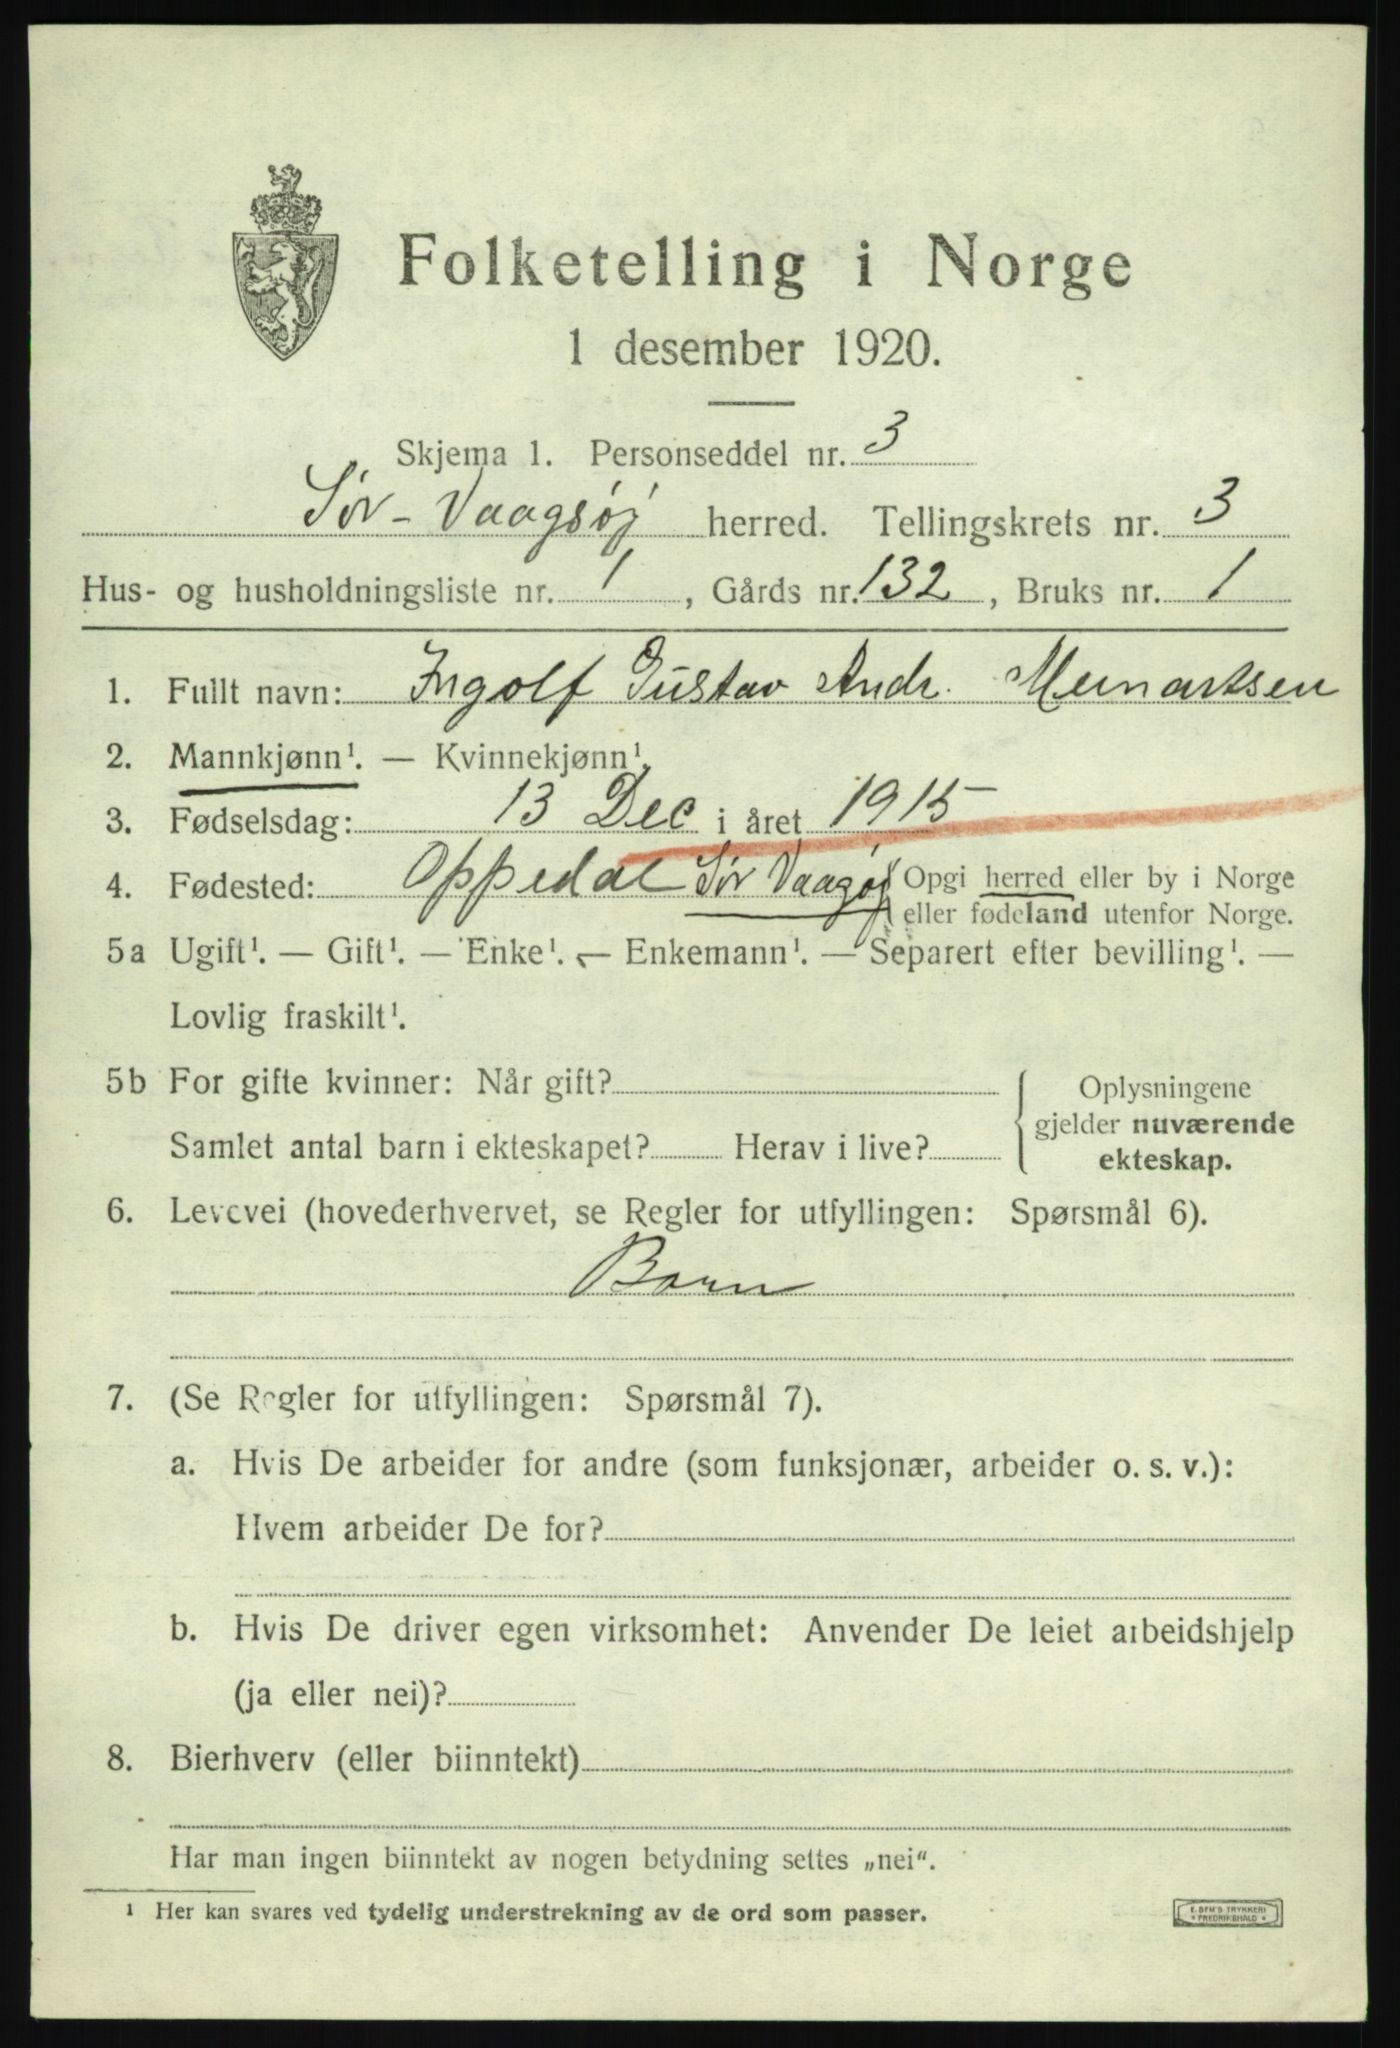 Folketelling i Norge
1 desember 1920.
Skjema 1. Personseddel nr. 3
Sør-Vaagsøy herred. Tellingskrets nr. 3
Hus- og husholdningsliste nr. 1, Gårds nr. 132, Bruks nr. 1
1. Fullt navn: Ingolf Gustav Andr. Meinartsen
2. Mannkjønn¹. — Kvinnekjønn¹.
3. Fødselsdag: 13 Dec i året 1915
4. Fødested: Oppedal Sør Vaagsøy Opgi herred eller by i Norge
eller fødeland utenfor Norge.
5a Ugift¹. — Gift¹. — Enke¹. — Enkemann¹. — Separert efter bevilling¹. —
Lovlig fraskilt¹.
5b For gifte kvinner: Når gift?
Samlet antal barn i ekteskapet? Herav i live?
Oplysningene
gjelder nuværende
ekteskap.
6. Levevei (hovederhvervet, se Regler for utfyllingen: Spørsmål 6).
Barn
7. (Se Regler for utfyllingen: Spørsmål 7).
a. Hvis De arbeider for andre (som funksjonær, arbeider o. s. v.):
Hvem arbeider De for?
b. Hvis De driver egen virksomhet: Anvender De leiet arbeidshjelp
(ja eller nei)?
8. Bierhverv (eller biinntekt)
Har man ingen biinntekt av nogen betydning settes „nei".
¹ Her kan svares ved tydelig understrekning av de ord som passer.
E. SEM'S TRYKKERI
FREDRIKSHALD